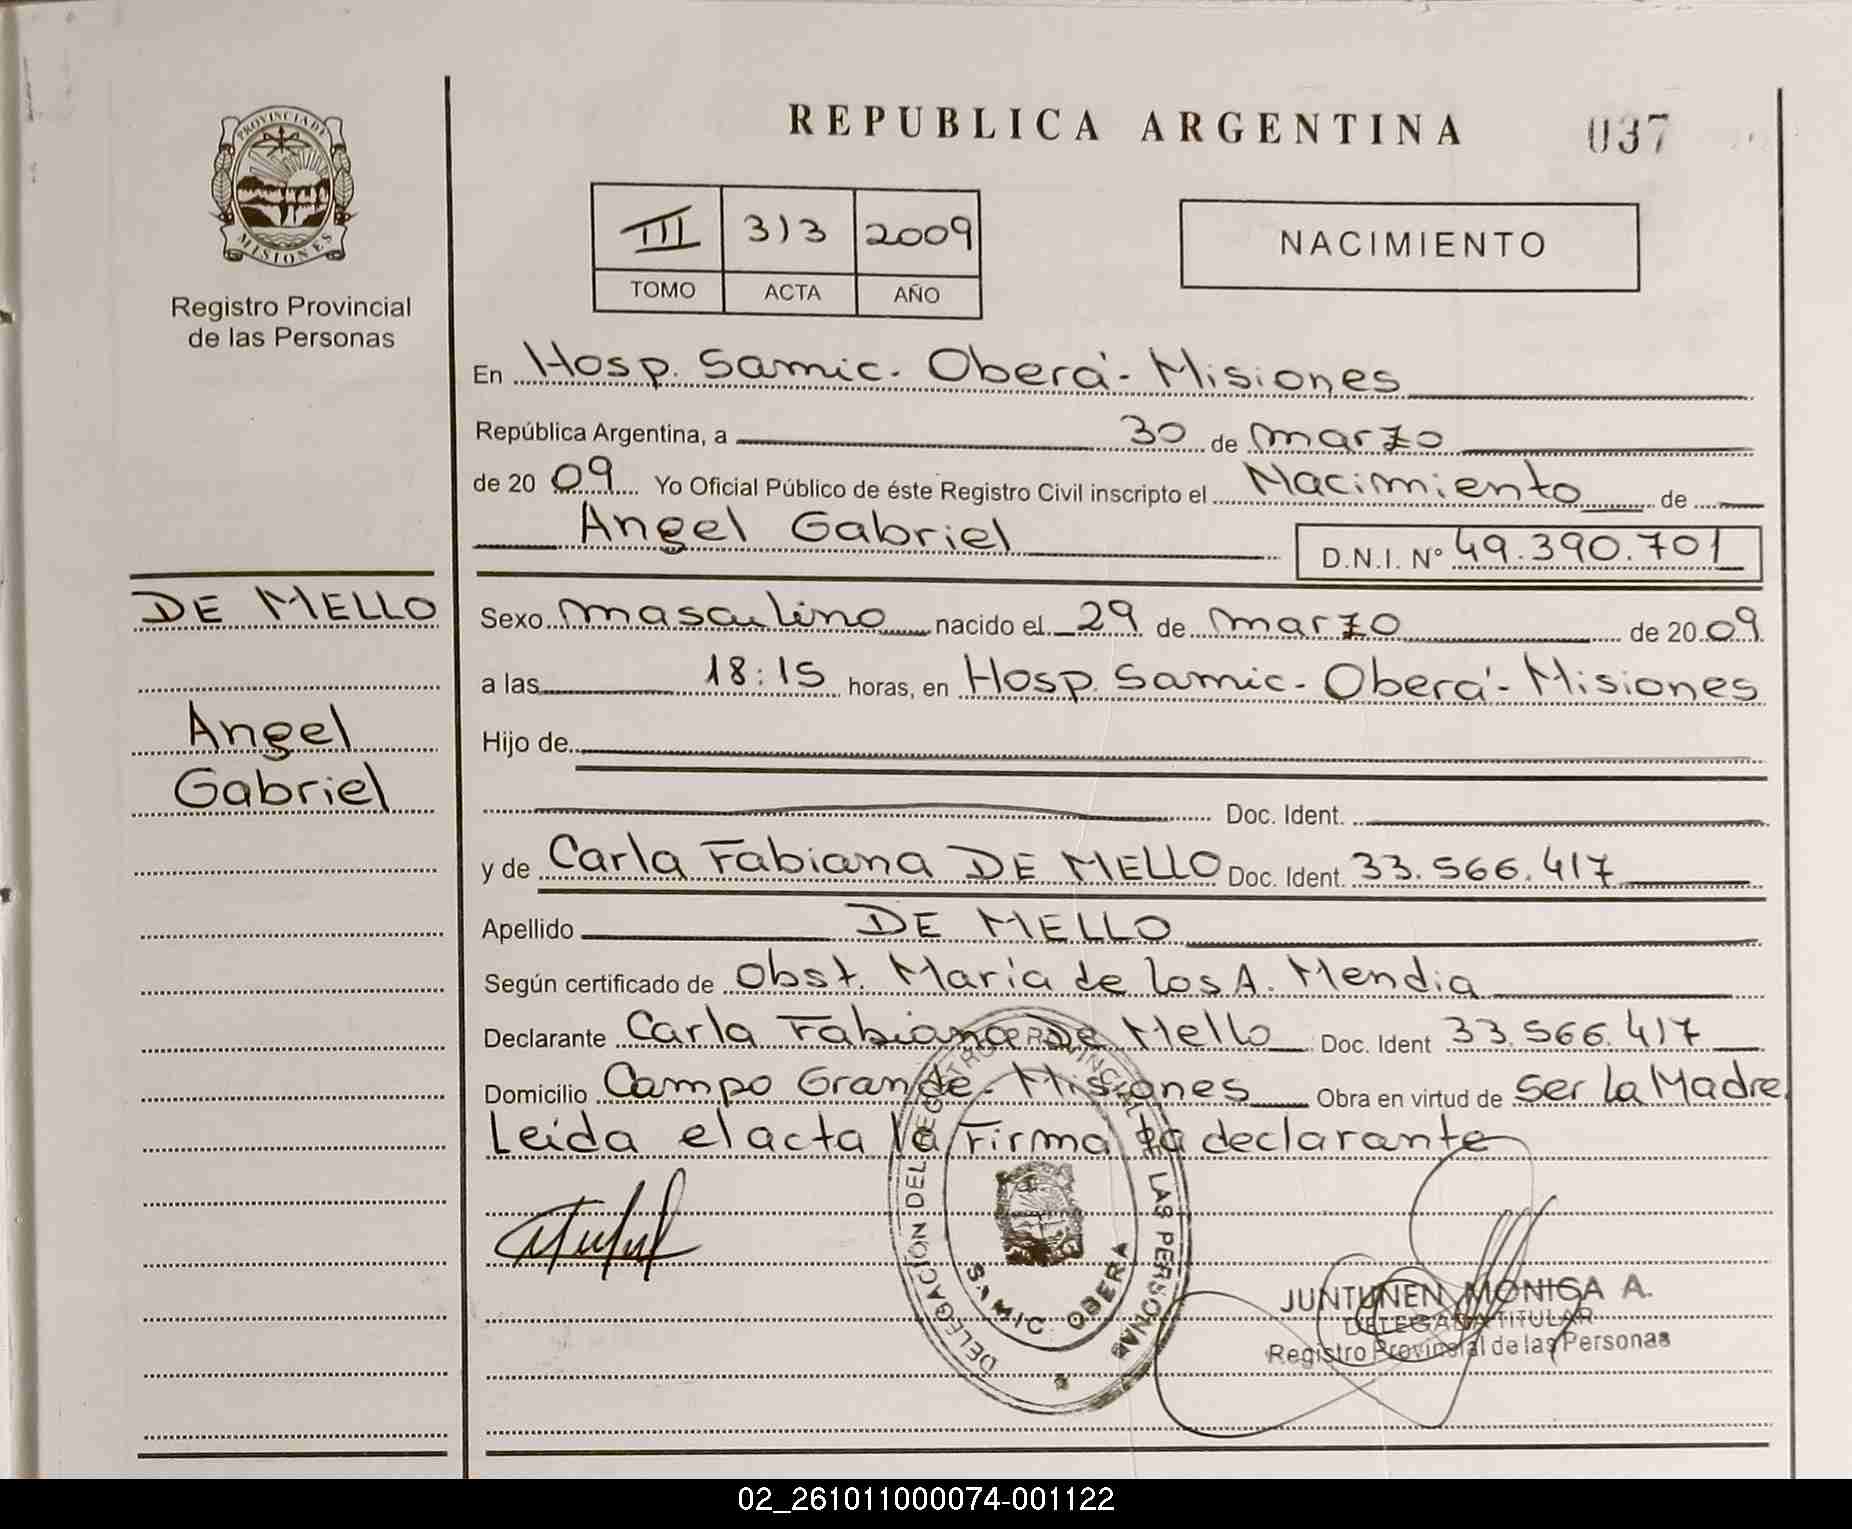 REPUBLICA ARGENTINA
037
PROVINCIA DE
MISIONES
Registro Provincial
de las Personas
III 313 2009
TOMO ACTA AÑO
NACIMIENTO
En Hosp. Samic. Oberá - Misiones
República Argentina, a 30 de marzo
de 20 09 Yo Oficial Público de éste Registro Civil inscripto el Nacimiento de
Angel Gabriel
D.N.I. Nº 49.390.701
DE MELLO
Angel
Gabriel
Sexo masculino nacido el 29 de marzo de 20 09
a las 18:15 horas, en Hosp. Samic - Oberá - Misiones
Hijo de
Doc. Ident.
y de Carla Fabiana DE MELLO Doc. Ident. 33.566.417
Apellido DE MELLO
Según certificado de Obst. María de los A. Mendia
Declarante Carla Fabiana De Mello Doc. Ident 33.566.417
Domicilio Campo Grande - Misiones Obra en virtud de ser la Madre
Leída el acta la firma la declarante
DELEGACIÓN DEL REGISTRO PROVINCIAL DE LAS PERSONAS
SAMIC OBERA
JUNTUNEN MONICA A.
DELEGADA TITULAR
Registro Provincial de las Personas
02_261011000074-001122